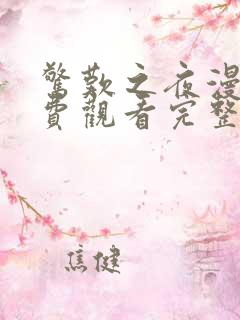 驚歎之夜漫
費觀看完整
焦健